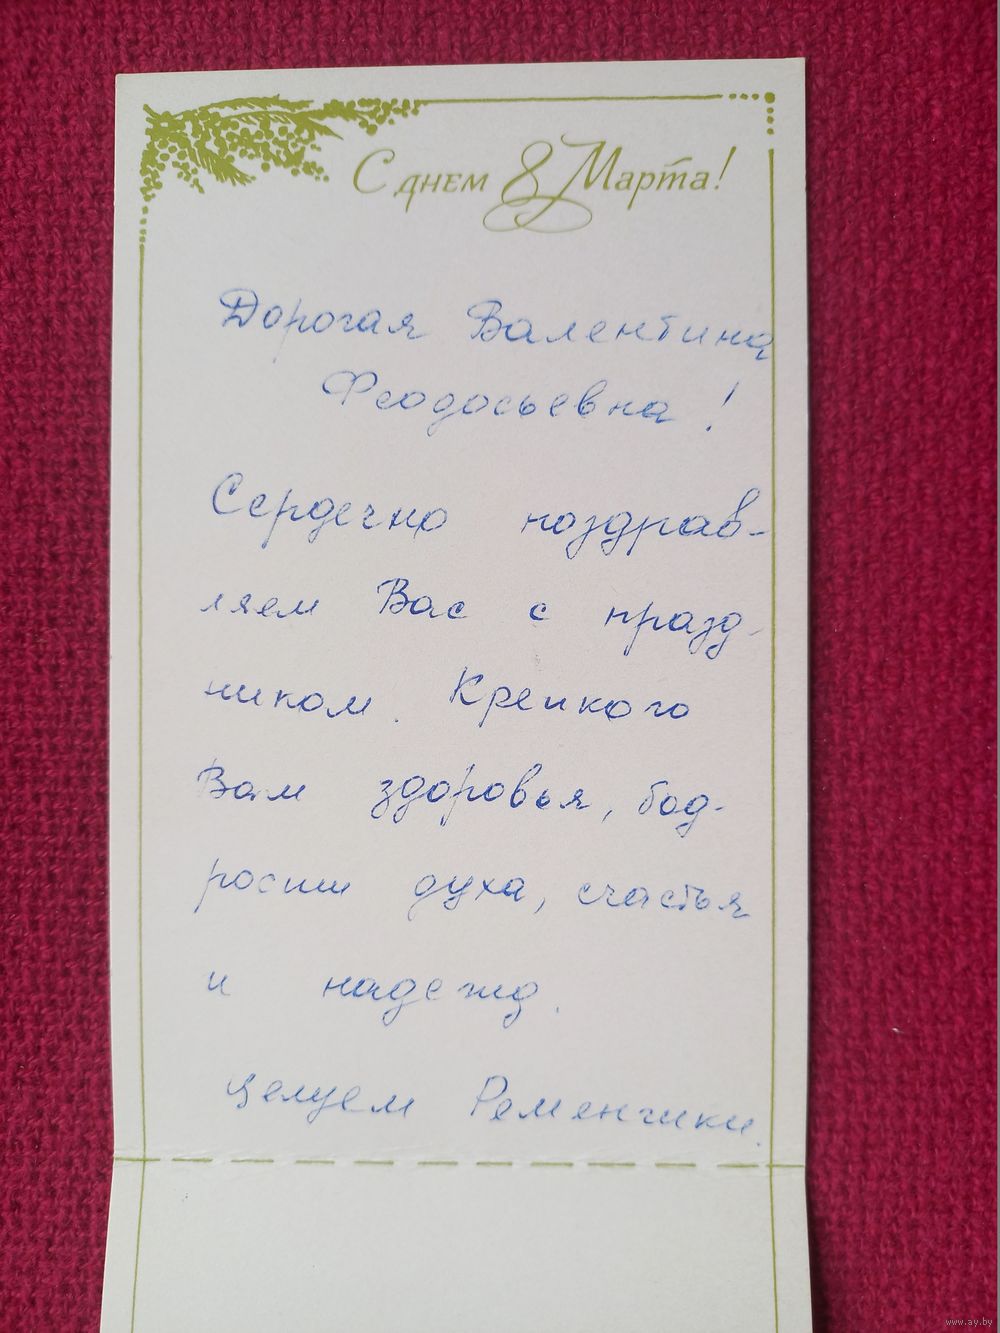 С днем 8 Марта!
Дорогая Валентина
Феодосьевна!
Сердечно поздрав-
ляем Вас с празд-
ником. Крепкого
Вам здоровья, бод-
рости духа, счастья
и надежд.
Целуем Ременчики.
www.ay.by